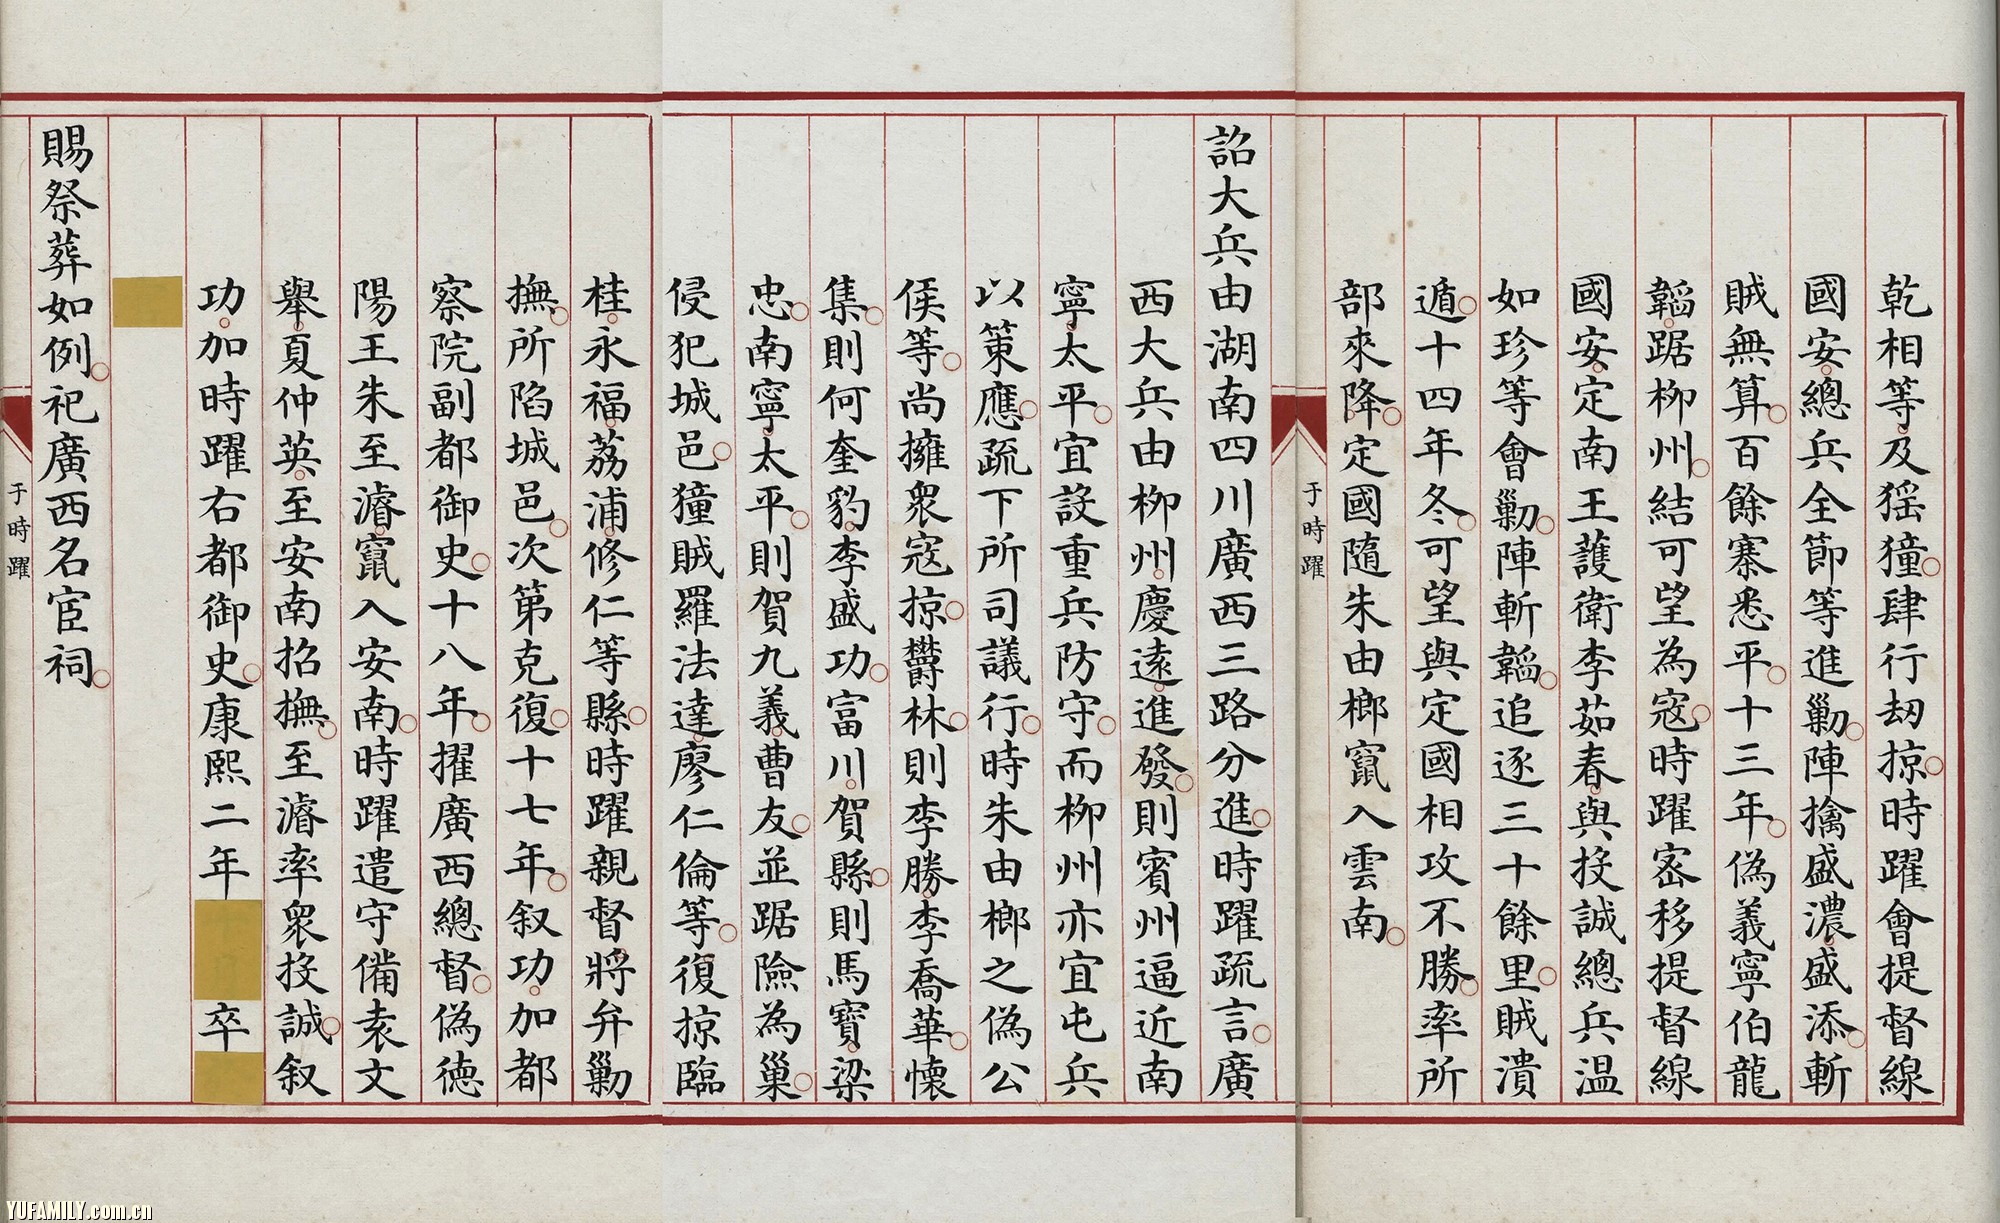 乾相等及猺獞肆行刼掠時躍會提督線
國安總兵全節等進勦陣擒盛濃盛添斬
賊無算百餘寨悉平十三年偽義寧伯龍
韜踞柳州結可望為寇時躍宻移提督線
國安定南王護衛李茹春與投誠總兵温
如珍等會勦陣斬韜追逐三十餘里賊潰
遁十四年冬可望與定國相攻不勝率所
部來降定國隨朱由榔竄入雲南
于時躍
詔大兵由湖南四川廣西三路分進時躍疏言廣
西大兵由柳州慶遠進發則賓州逼近南
寧太平宜設重兵防守而柳州亦宜屯兵
以策應疏下所司議行時朱由榔之偽公
侯等尚擁衆寇掠欎林則李勝李喬華懷
集則何奎豹李盛功富川賀縣則馬寶梁
忠南寧太平則賀九義曹友並踞險為巢
侵犯城邑獞賊羅法達廖仁倫等復掠臨
桂永福荔浦修仁等縣時躍親督將弁勦
撫所陷城邑次第克復十七年叙功加都
察院副都御史十八年擢廣西總督偽德
陽王朱至濬竄入安南時躍遣守備袁文
舉夏仲英至安南招撫至濬率衆投誠叙
功加時躍右都御史康熙二年
卒
賜祭葬如例祀廣西名宦祠
于時躍
YUFAMILY.com.cn